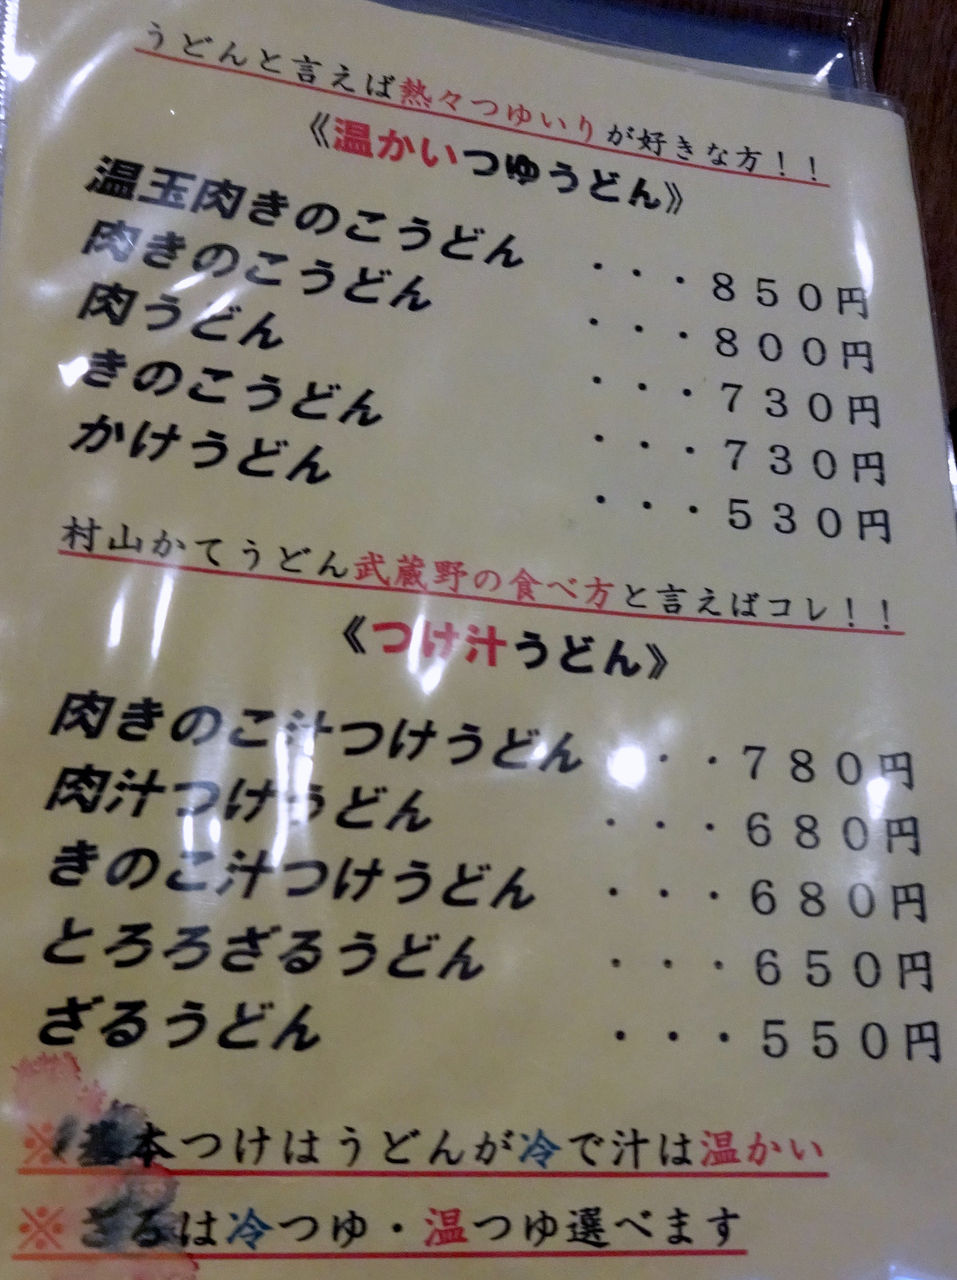 うどんと言えば熱々つゆいりが好きな方！！
《温かいつゆうどん》
温玉肉きのこうどん ・・・８５０円
肉きのこうどん ・・・８００円
肉うどん ・・・７３０円
きのこうどん ・・・７３０円
かけうどん ・・・５３０円
村山かてうどん武蔵野の食べ方と言えばコレ！！
《つけ汁うどん》
肉きのこ汁つけうどん ・・・７８０円
肉汁つけうどん ・・・６８０円
きのこ汁つけうどん ・・・６８０円
とろろざるうどん ・・・６５０円
ざるうどん ・・・５５０円
※基本つけはうどんが冷で汁は温かい
※ざるは冷つゆ・温つゆ選べます